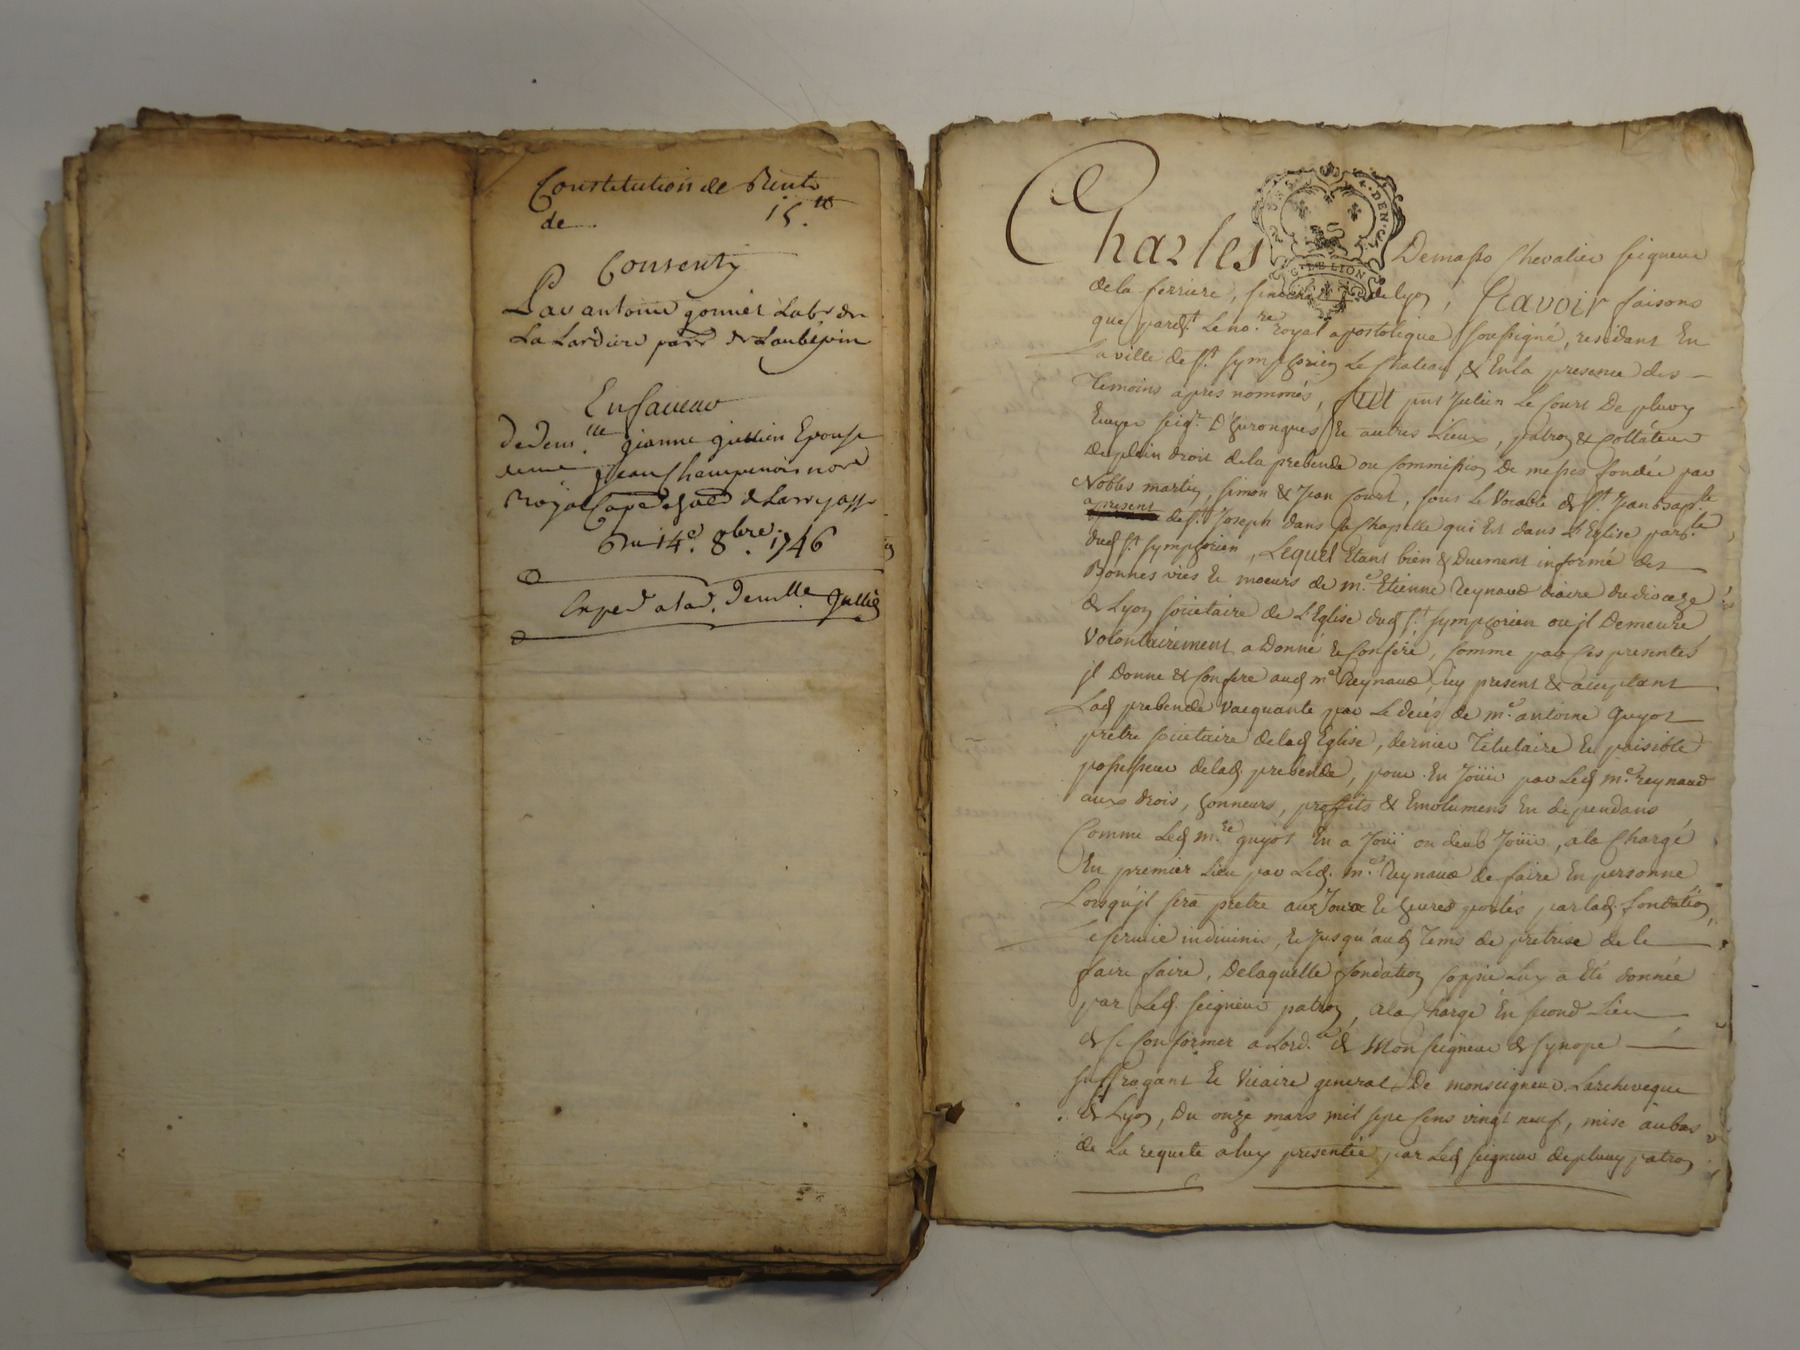 Constitution de Rente
de 15.tt
Consenty
Par antoine gonnet Labr. de
La Lardiere parr. de Laubépin
En faveur
de dem.lle jeanne jullien Epouse
de me jean Champenois nore
Royal
Du 14e. 8bre. 1746
Exped a lad. Demlle. Jullie
Charles Demasso Chevalier seigneur
G. DE LION
de la ferriere, de Lyon, Scavoir faisons
que pard.t Le no.re royal apostolique soussigné, residant En
La ville de st. symphorien Le Chateau, & En la presence des
Temoins après nommés, fut pnt Julien Le Court De pluvy
Ecuyer seigr. D'hurongues, & autres Lieux, patron & Collateur
De plein droit de la prebende ou Commission de messes fondée par
Nobles martin, simon & Jean Court, sous Le Vocable de st. Jean bap.te
apresent de st. Joseph dans sa Chapelle qui Est dans L'Eglise par.le
dud st. symphorien, Lequel Etant bien & Duement informé des
Bonnes vies & moeurs de me. Etienne Reynaud diacre du diocèze
de Lyon societaire de L'Eglise dud st. symphorien ou jl Demeure
Volontairement a Donné & Conferé, Comme par Ces presentes
jl Donne & Confere aud me Reynaud, icy present & acceptant
Lad prebende Vacquante par Le decés de me. antoine guyot
prêtre societaire de lad Eglise, dernier Titulaire & paisible
possesseur de lad. prebende, pour En Joüir par Led me. reynaud
aux drois, honneurs, proffits & Emolumens En dependans
Comme Led m.re guyot En a Joüi ou deub Joüir, a la Charge
En premier Lieu par Led. me. Reynaud de faire En personne
Lorsqu'jl sera prêtre aux Jours & heures portés par lad. fondation,
Le service in divinis, & Jusqu'aud Tems de pretrise de le
faire faire, De laquelle fondation Coppie Luy a Eté donnée
par Led. seigneur patron, a la Charge En second Lieu
de se Conformer a Lord.ce de Monseigneur de synope
suffragant & Vicaire general De monseigneur Larcheveque
de Lyon, Du onze mars mil sept Cens vingt neuf, mise au bas
de La requete a luy presentée par Led seigneur de pluvy patron